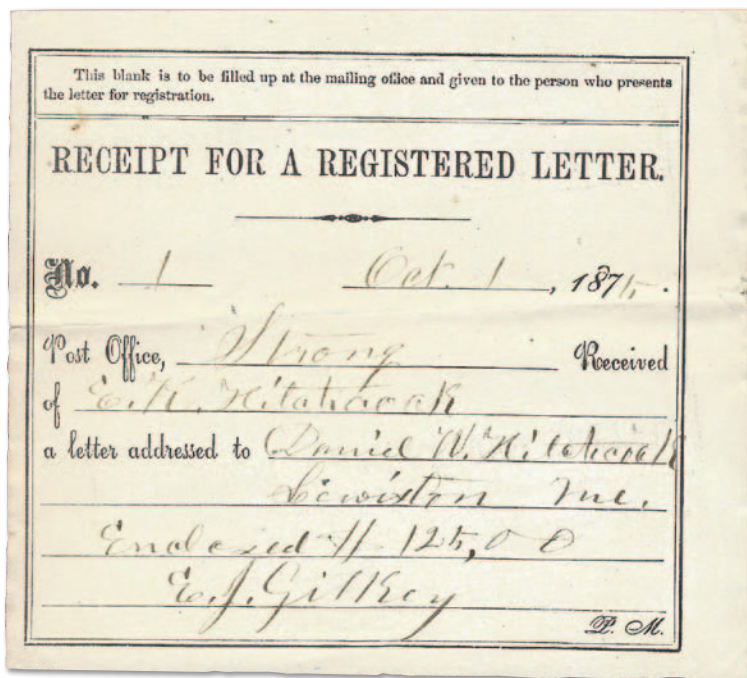 This blank is to be filled up at the mailing office and given to the person who presents
the letter for registration.
RECEIPT FOR A REGISTERED LETTER.
No. 1 Oct. 1, 1875.
Post Office, Strong Received
of E. K. Hitchcock
a letter addressed to Daniel W. Hitchcock
Lewiston Me.
Enclosed $ 125,00
E. J. Gilkey
P. M.